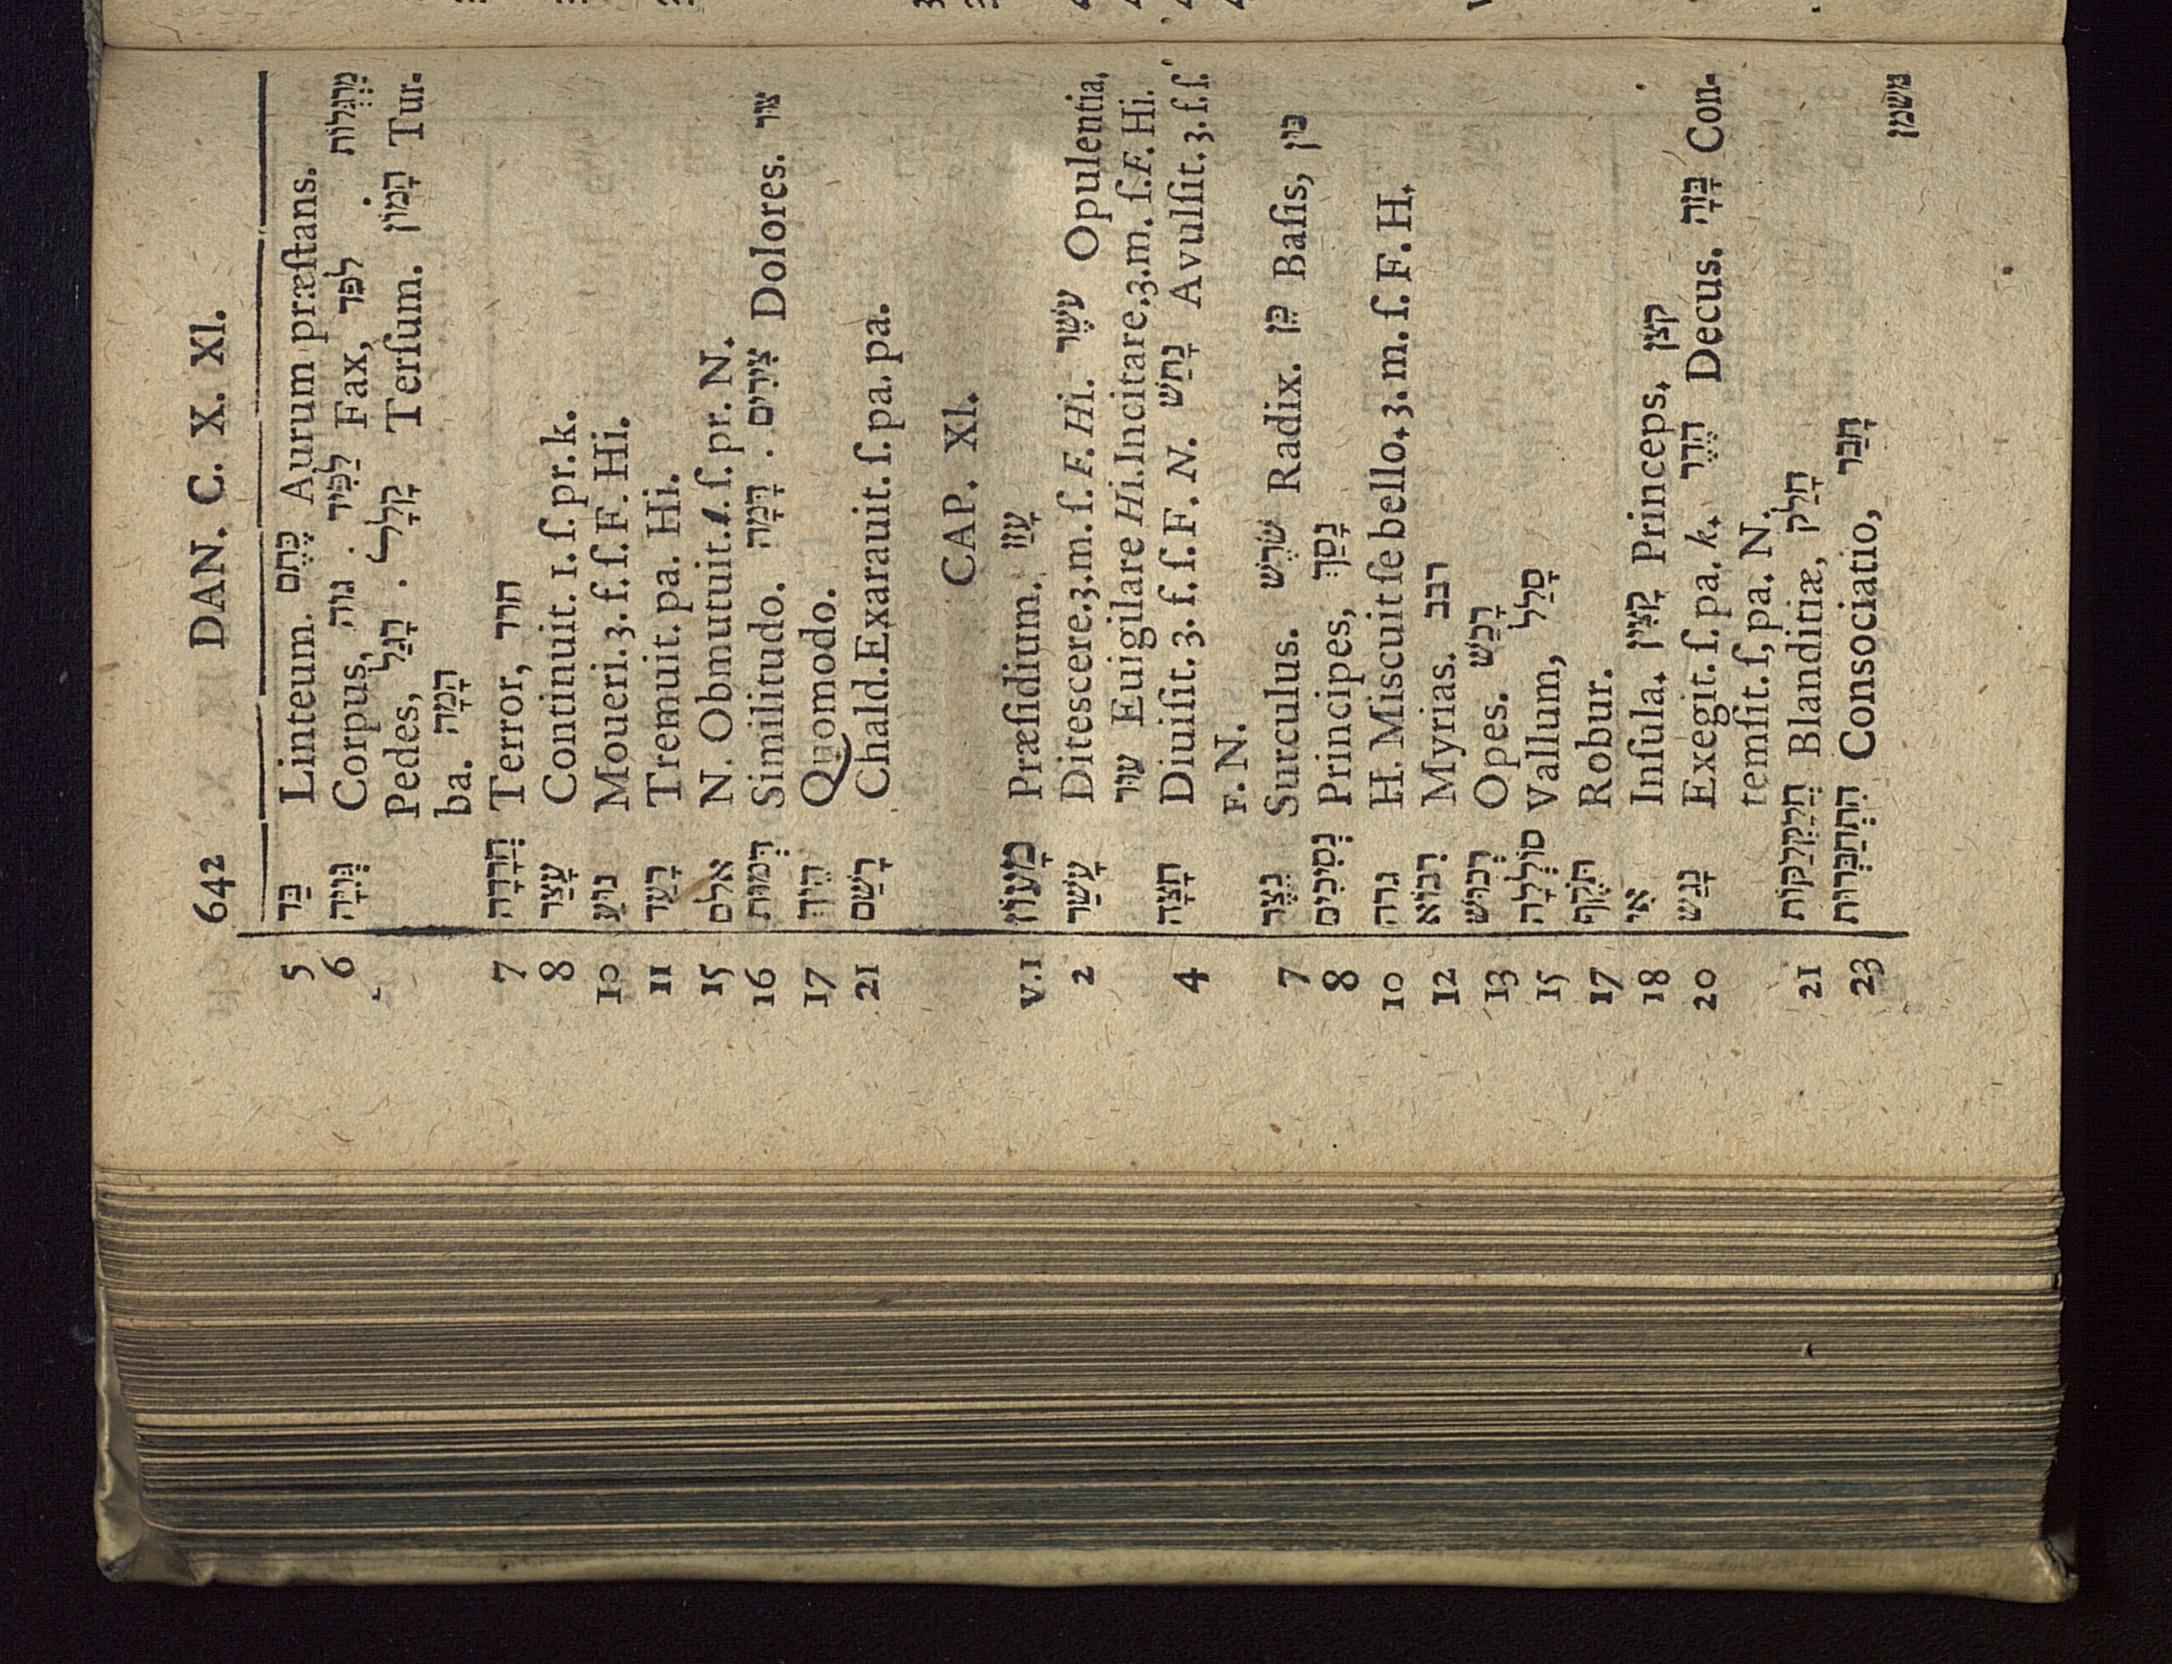 642 DAN. C. X. XI.
5 בַּד Linteum. כֶּתֶם Aurum præſtans.
6 גְּוִיָּה Corpus, גוה . לַפִּיד Fax, לפד . מַרְגְּלוֹת
Pedes, רָגַל . קָלָל Terſum. הָמוֹן Tur.
ba. הָמָה
7 חֲרָדָה Terror, חרד
8 עָצַר Continuit. 1. ſ. pr. k.
10 נוּעַ Moueri. 3. f. ſ. F. Hi.
11 רָעַד Tremuit. pa. Hi.
15 אלם N. Obmutuit. 1. ſ. pr. N.
16 דְּמוּת Similitudo. דָּמָה . צִירִים Dolores. ציר
17 הֵיךְ Quomodo.
21 רָשַׁם Chald. Exarauit. ſ. pa. pa.
CAP. XI.
v. 1 מָעוֹז Præſidium. עָזַז
2 עָשַׁר Diteſcere. 3. m. ſ. F. Hi. עֹשֶׁר Opulentia,
עוּר Euigilare Hi. Incitare. 3. m. ſ. F. Hi.
4 חָצָה Diuiſit. 3. f. ſ. F. N. נָתַשׁ Avulſit. 3. f. ſ.
F. N.
7 נֵצֶר Surculus. שֹׁרֶשׁ Radix. כֵּן Baſis, כּוּן
8 נְסִיכִים Principes, נָסַךְ
10 גרה H. Miscuit ſe bello. 3. m. ſ. F. H.
12 רִבּוֹא Myrias. רבב
13 רְכוּשׁ Opes. רָכַשׁ
15 סוֹלְלָה Vallum, סָלַל
17 תֹּקֶף Robur.
18 אִי Inſula. קָצִין Princeps. קצן
20 נָגַשׂ Exegit. ſ. pa. k. הֶדֶר Decus. בָּזָה Con-
temſit. ſ, pa. N.
21 חֲלַקְלַקּוֹת Blanditiæ, חָלַק
23 הִתְחַבְּרוּת Consociatio, חָבַר
משמן